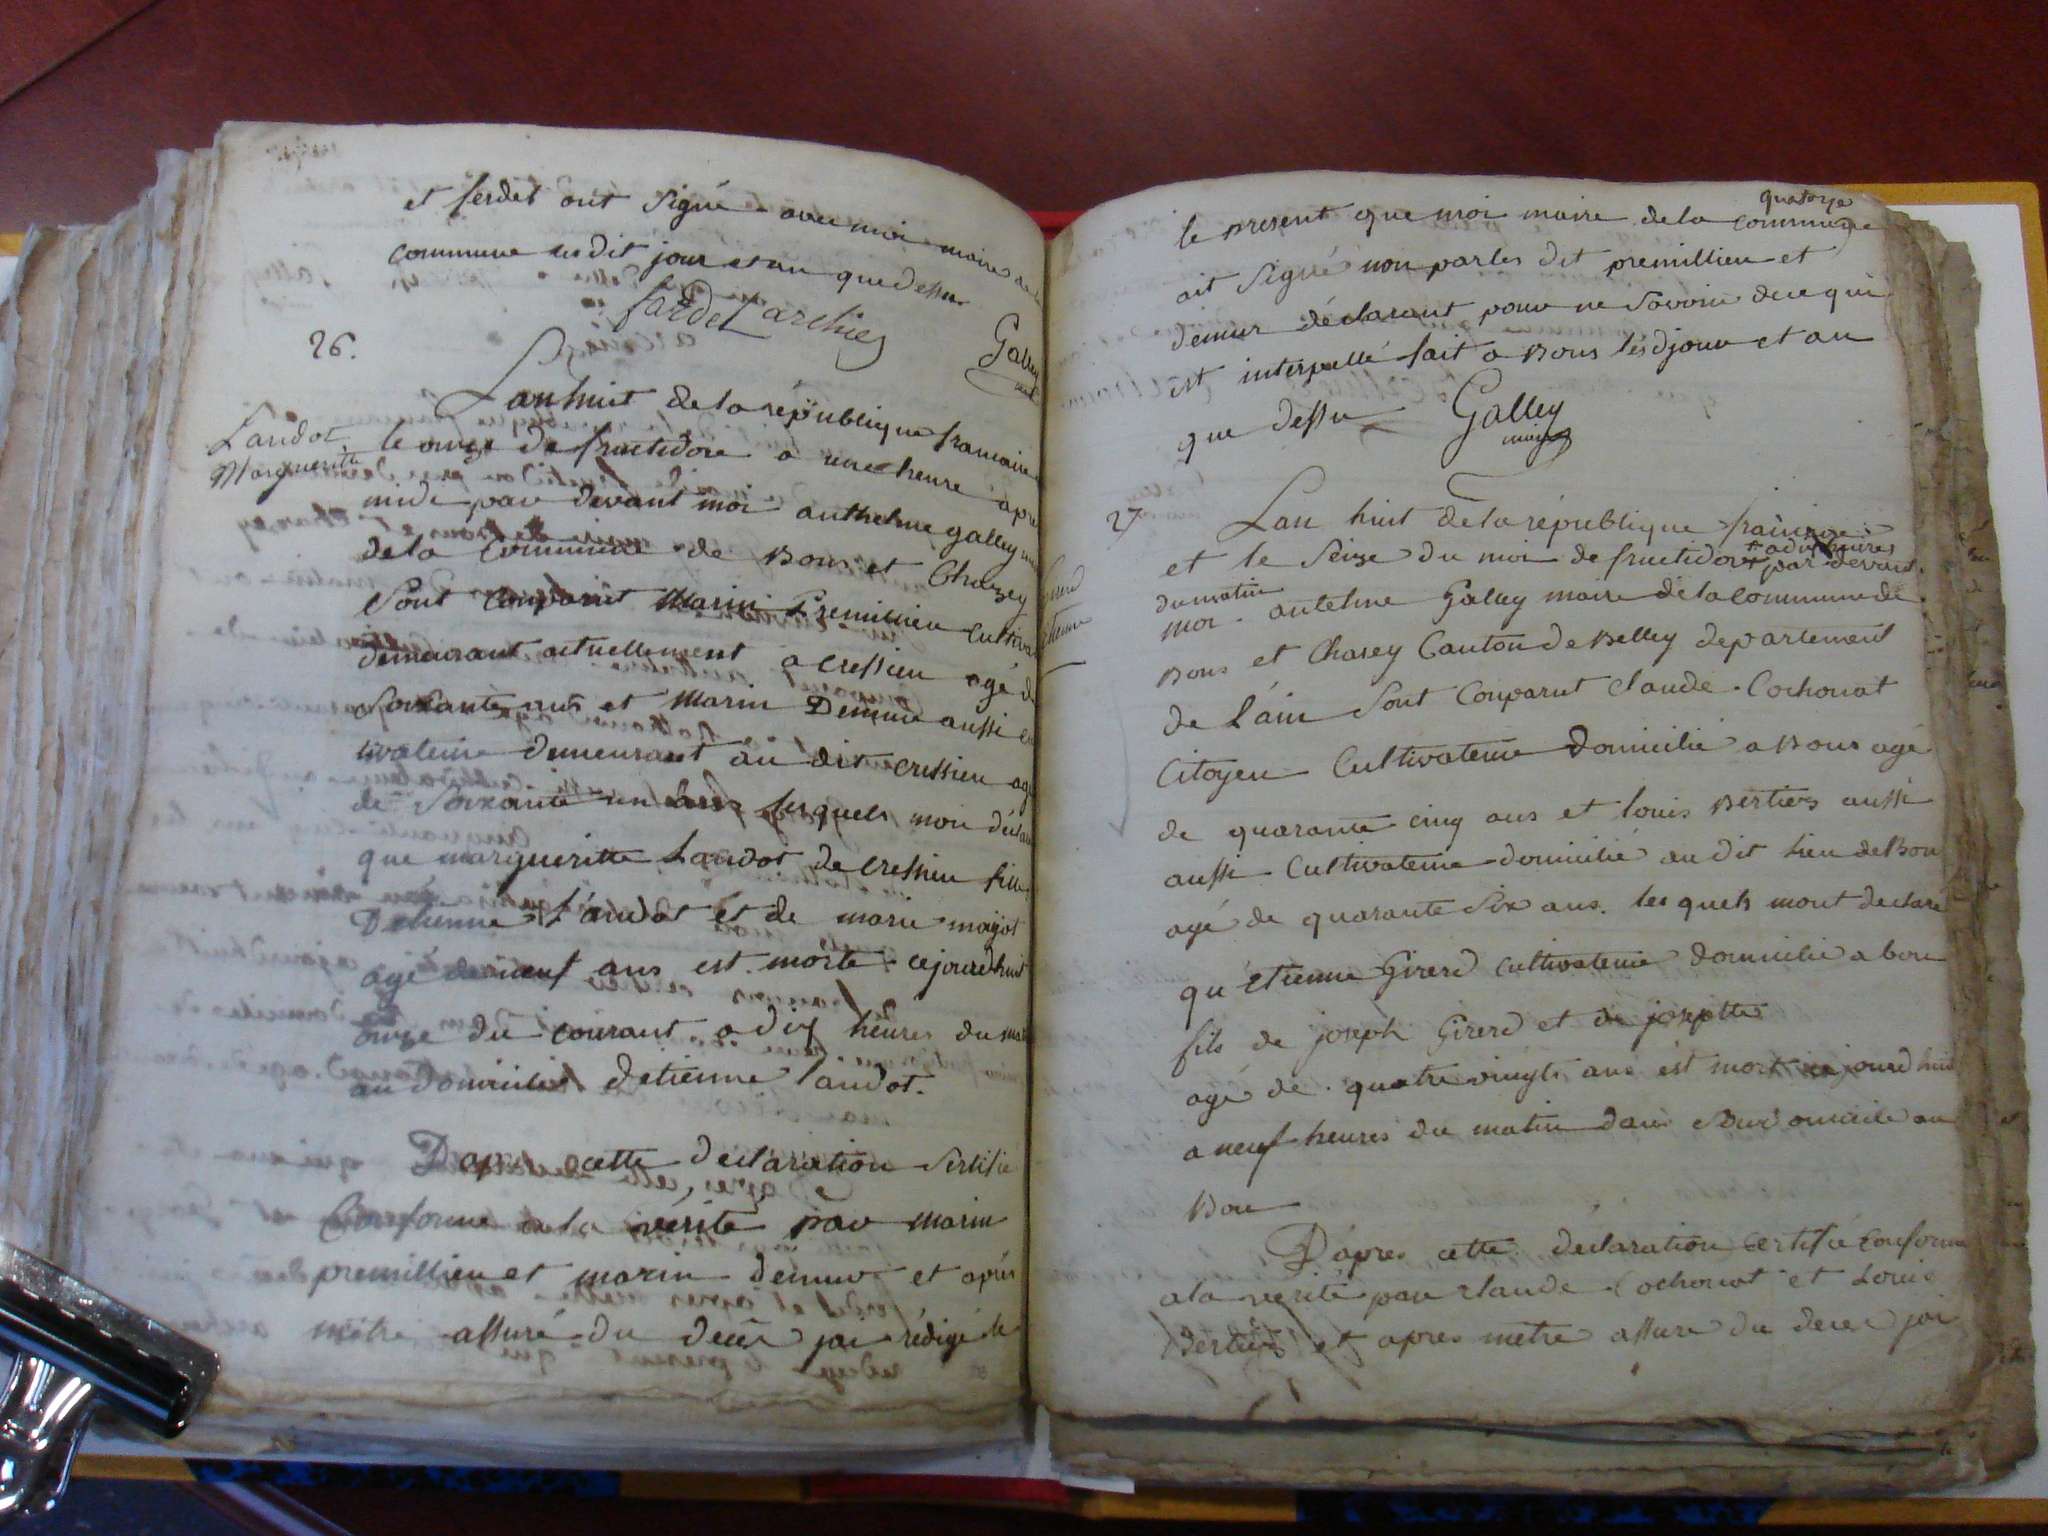 et ferdet ont Signé avec moi maire de la
commune les dit jour et an que dessu
fardel archier
Galley
26.
Landot
Marguerite
Lan huit de la république francaise
le onze de fructidore a une heure apre
midi par devant moi anthelme galley
de la Commune de Bons et Chazey
Sont Comparut Marin Premillieu Cultiva
demeurant actuellement a cressieu agé de
Soixante ans et Marin Demeur aussi cul
tivateure demeurant au dit cressieu agé
de Soixante un ans lesquels mon déclaré
que margueritte Landot de cressieu fille
Detienne Landot et de marie mayot
agé de neuf ans est morte cejourdhuit
onze du courant a dix heures du mat
au domicilie detienne landot.
Dapre cette declaration sertifie
Conforme a la vérité par marin
premillieu et marin demeur et aprés
métre assuré du decès jai rédigé le
quatorze
le present que moi maire de la commune
ait Signé non par les dit premillieu et
demeur déclarant pour ne Savoir de ce qui
 est interpellé fait a Bons lesdjour et an
que dessu Galley
maire
27
Girerd
etienne
Lan huit de la république francaise
et le Seize du moi de fructidor + par devant
+ a dix heures
du matin
moi antelme Galley maire de la commune de
Bons et Chasey Canton de Belley departement
de l'ain Sont Conparut Claude Cochonat
Citoyen Cultivateure domicilié a Bons agé
de quarante cinq ans et louis Bertier aussi
aussi Cultivateure domicilié au dit lieu de Bon
agé de quarante Six ans. les quels mont declaré
qu'etienne Girerd cultivateure domicilié a bon
fils de joseph Girerd et de jozette
agé de quatre vingts ans est mort cejourd huit
a neuf heures du matin dans Son domicile au
Bon
D'apres cette déclaration certifié conforme
a la verité par claude Cochonat et Louis
Bertier et apres mètre assure du deces jai